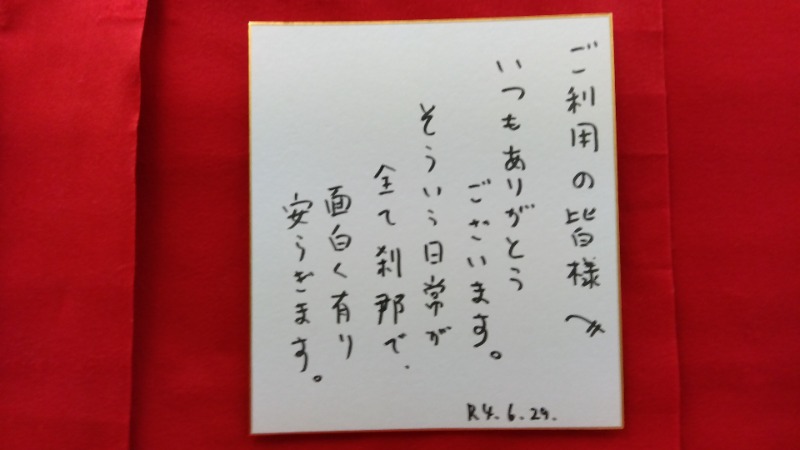 ご利用の皆様へ
いつもありがとう
ございます。
そういう日常が
全て刹那で、
面白く有り
安らぎます。
R4.6.29.